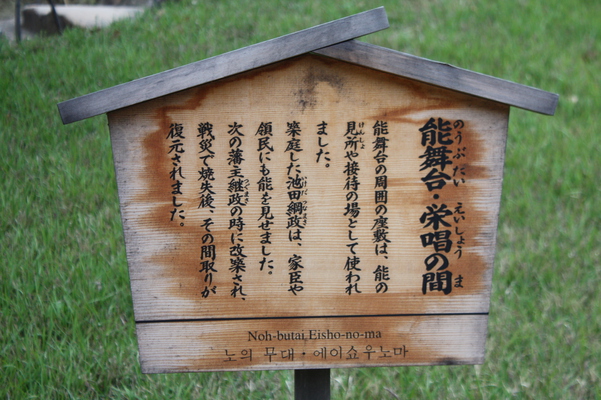 能舞台・栄唱の間
のうぶたい えいしょう ま
能舞台の周囲の座敷は、能の
見所や接待の場として使われ
けんしょ
ました。
築庭した池田綱政は、家臣や
いけだつなまさ
領民にも能を見せました。
次の藩主継政の時に改築され、
つぐまさ
戦災で焼失後、その間取りが
復元されました。
Noh-butai,Eisho-no-ma
노의 무대・에이쇼우노마